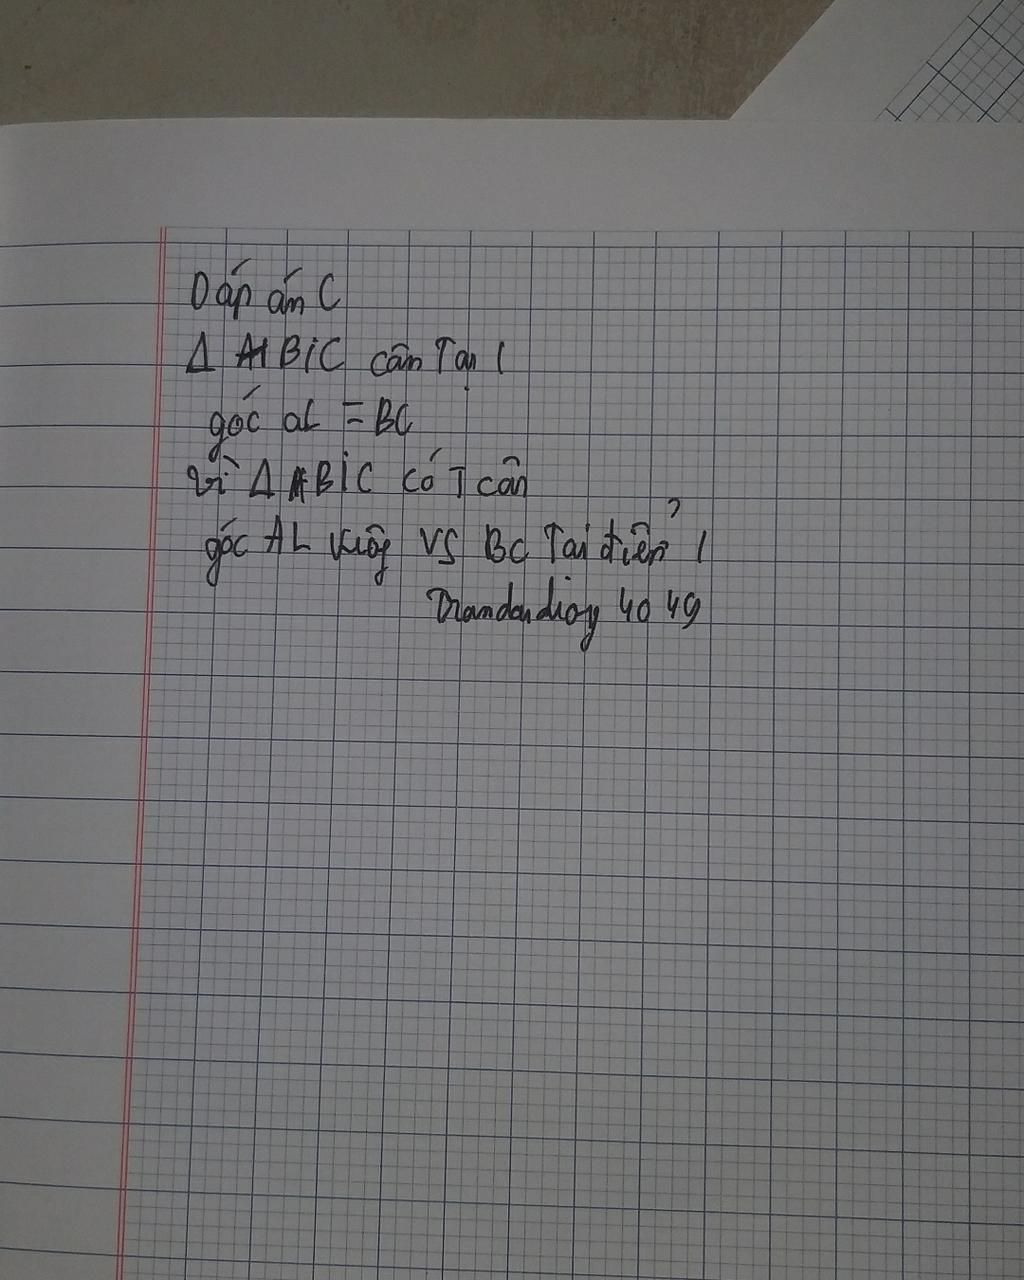 Dáp án C
Δ BIC cân Tại I
góc aL = BC
vì Δ BIC có I cân
góc AL vuôg VS BC Tại điển I
Trandanduong 4049